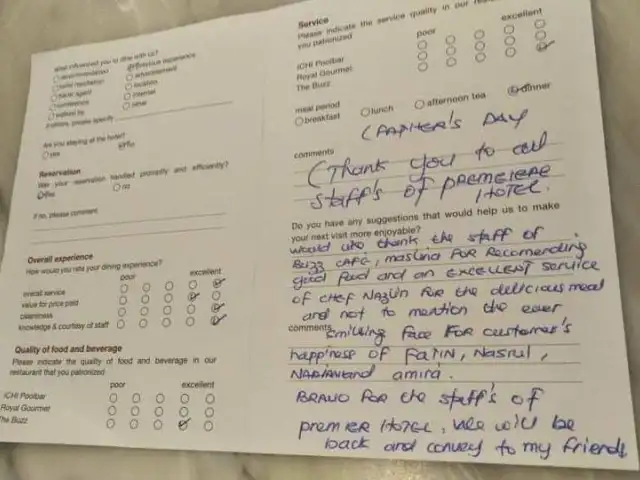 What influenced you to dine with us?
recommendation
previous experience
hotel reputation
advertisement
travel agent
location
conference
internet
walked by
other
if others, please specify
Are you staying at the hotel?
yes
no
Reservation
Was your reservation handled promptly and efficiently?
yes
no
If no, please comment
Overall experience
How would you rate your dining experience?
poor excellent
overall service
value for price paid
cleanliness
knowledge & courtesy of staff
Quality of food and beverage
Please indicate the quality of food and beverage in our
restaurant that you patronized
poor excellent
ICHI Poolbar
Royal Gourmet
The Buzz
Service
Please indicate the service quality in our
you patronized
poor excellent
ICHI Poolbar
Royal Gourmet
The Buzz
meal period
breakfast lunch afternoon tea dinner
DAY
comments
(Thank you to all
staff's OF PREMEIERE
HOTEL.
Do you have any suggestions that would help us to make
your next visit more enjoyable?
would like thank the staff of
Buzz CAFE, maslina FOR Recomending
good food and an EXCELLENT service
OF CHEF NAZLIN FOR the delicious meal
and not to mention the ever
comments
smiling face FOR customer's
happiness OF FATIN, Nasrul,
and amira.
BRAVO FOR the staff's OF
premIER HOTEL, we will be
back and convey to my friends